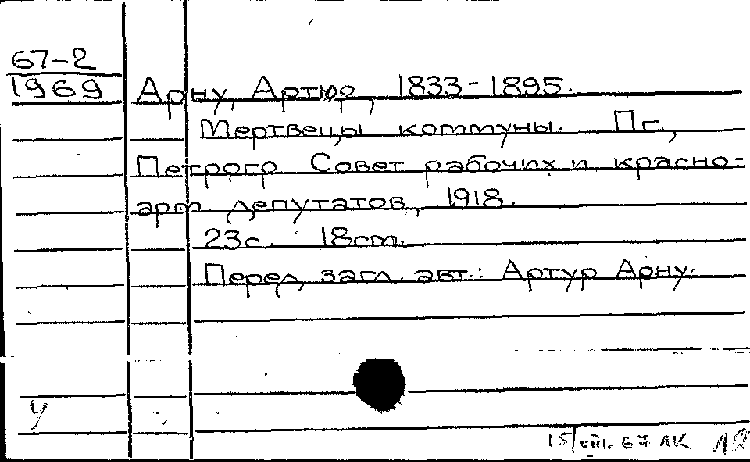 67-2
1969
Арну, Артюр, 1833-1895.
Мертвецы коммуны. Пг.,
Петрогр. Совет рабочих и красно-
арм. депутатов, 1918.
23с. 18cm.
Перед загл. авт.: Артур Арну.
У
15/VIII. 67 АК